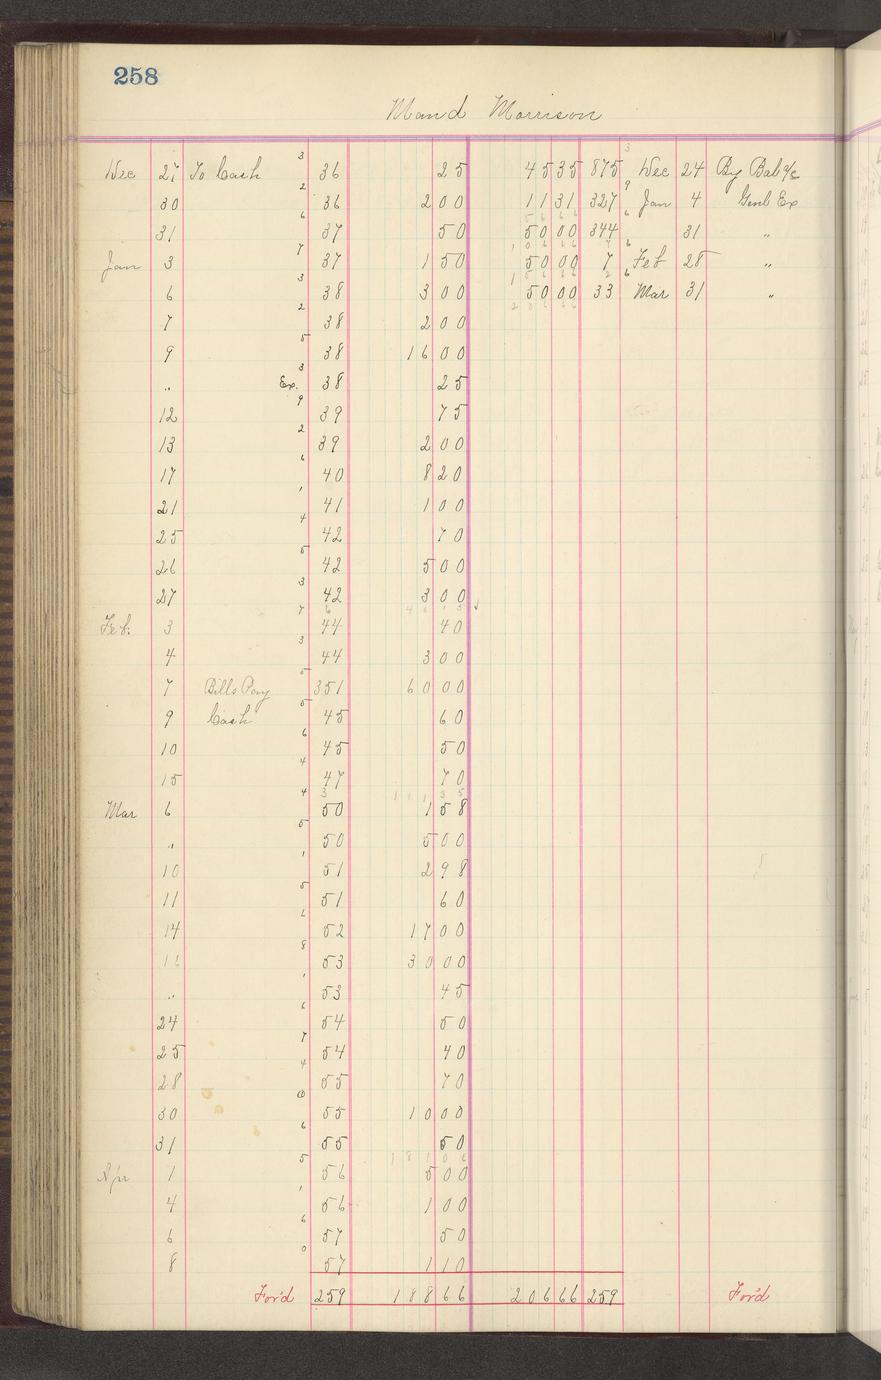 258
Maud Morrison
Dec 27 To Cash 3 36 25 45 35 875 3 Dec 24 By Bal a/c
30 2 36 2 00 11 31 327 9 Jan 4 Genl Ex
31 6 37 50 50 00 344 6 31 "
Jan 3 7 37 1 50 50 00 7 6 Feb 28 "
6 3 38 3 00 50 00 33 6 Mar 31 "
7 2 38 2 00
9 5 38 16 00
" Ex. 3 38 25
12 9 39 75
13 2 39 2 00
17 6 40 8 20
21 1 41 1 00
25 4 42 70
26 5 42 5 00
27 3 42 3 00
Feb. 3 7 44 40
4 3 44 3 00
7 Bills Pay 5 351 60 00
9 Cash 5 45 60
10 6 45 50
15 4 47 70
Mar 6 4 50 1 58
" 5 50 5 00
10 1 51 2 98
11 5 51 60
14 6 52 17 00
16 8 53 30 00
" 1 53 45
24 6 54 50
25 7 54 40
28 4 55 70
30 0 55 10 00
31 6 55 50
Apr 1 5 56 5 00
4 1 56 1 00
6 6 57 50
8 0 57 1 10
For'd 259 188 66 206 66 259 For'd